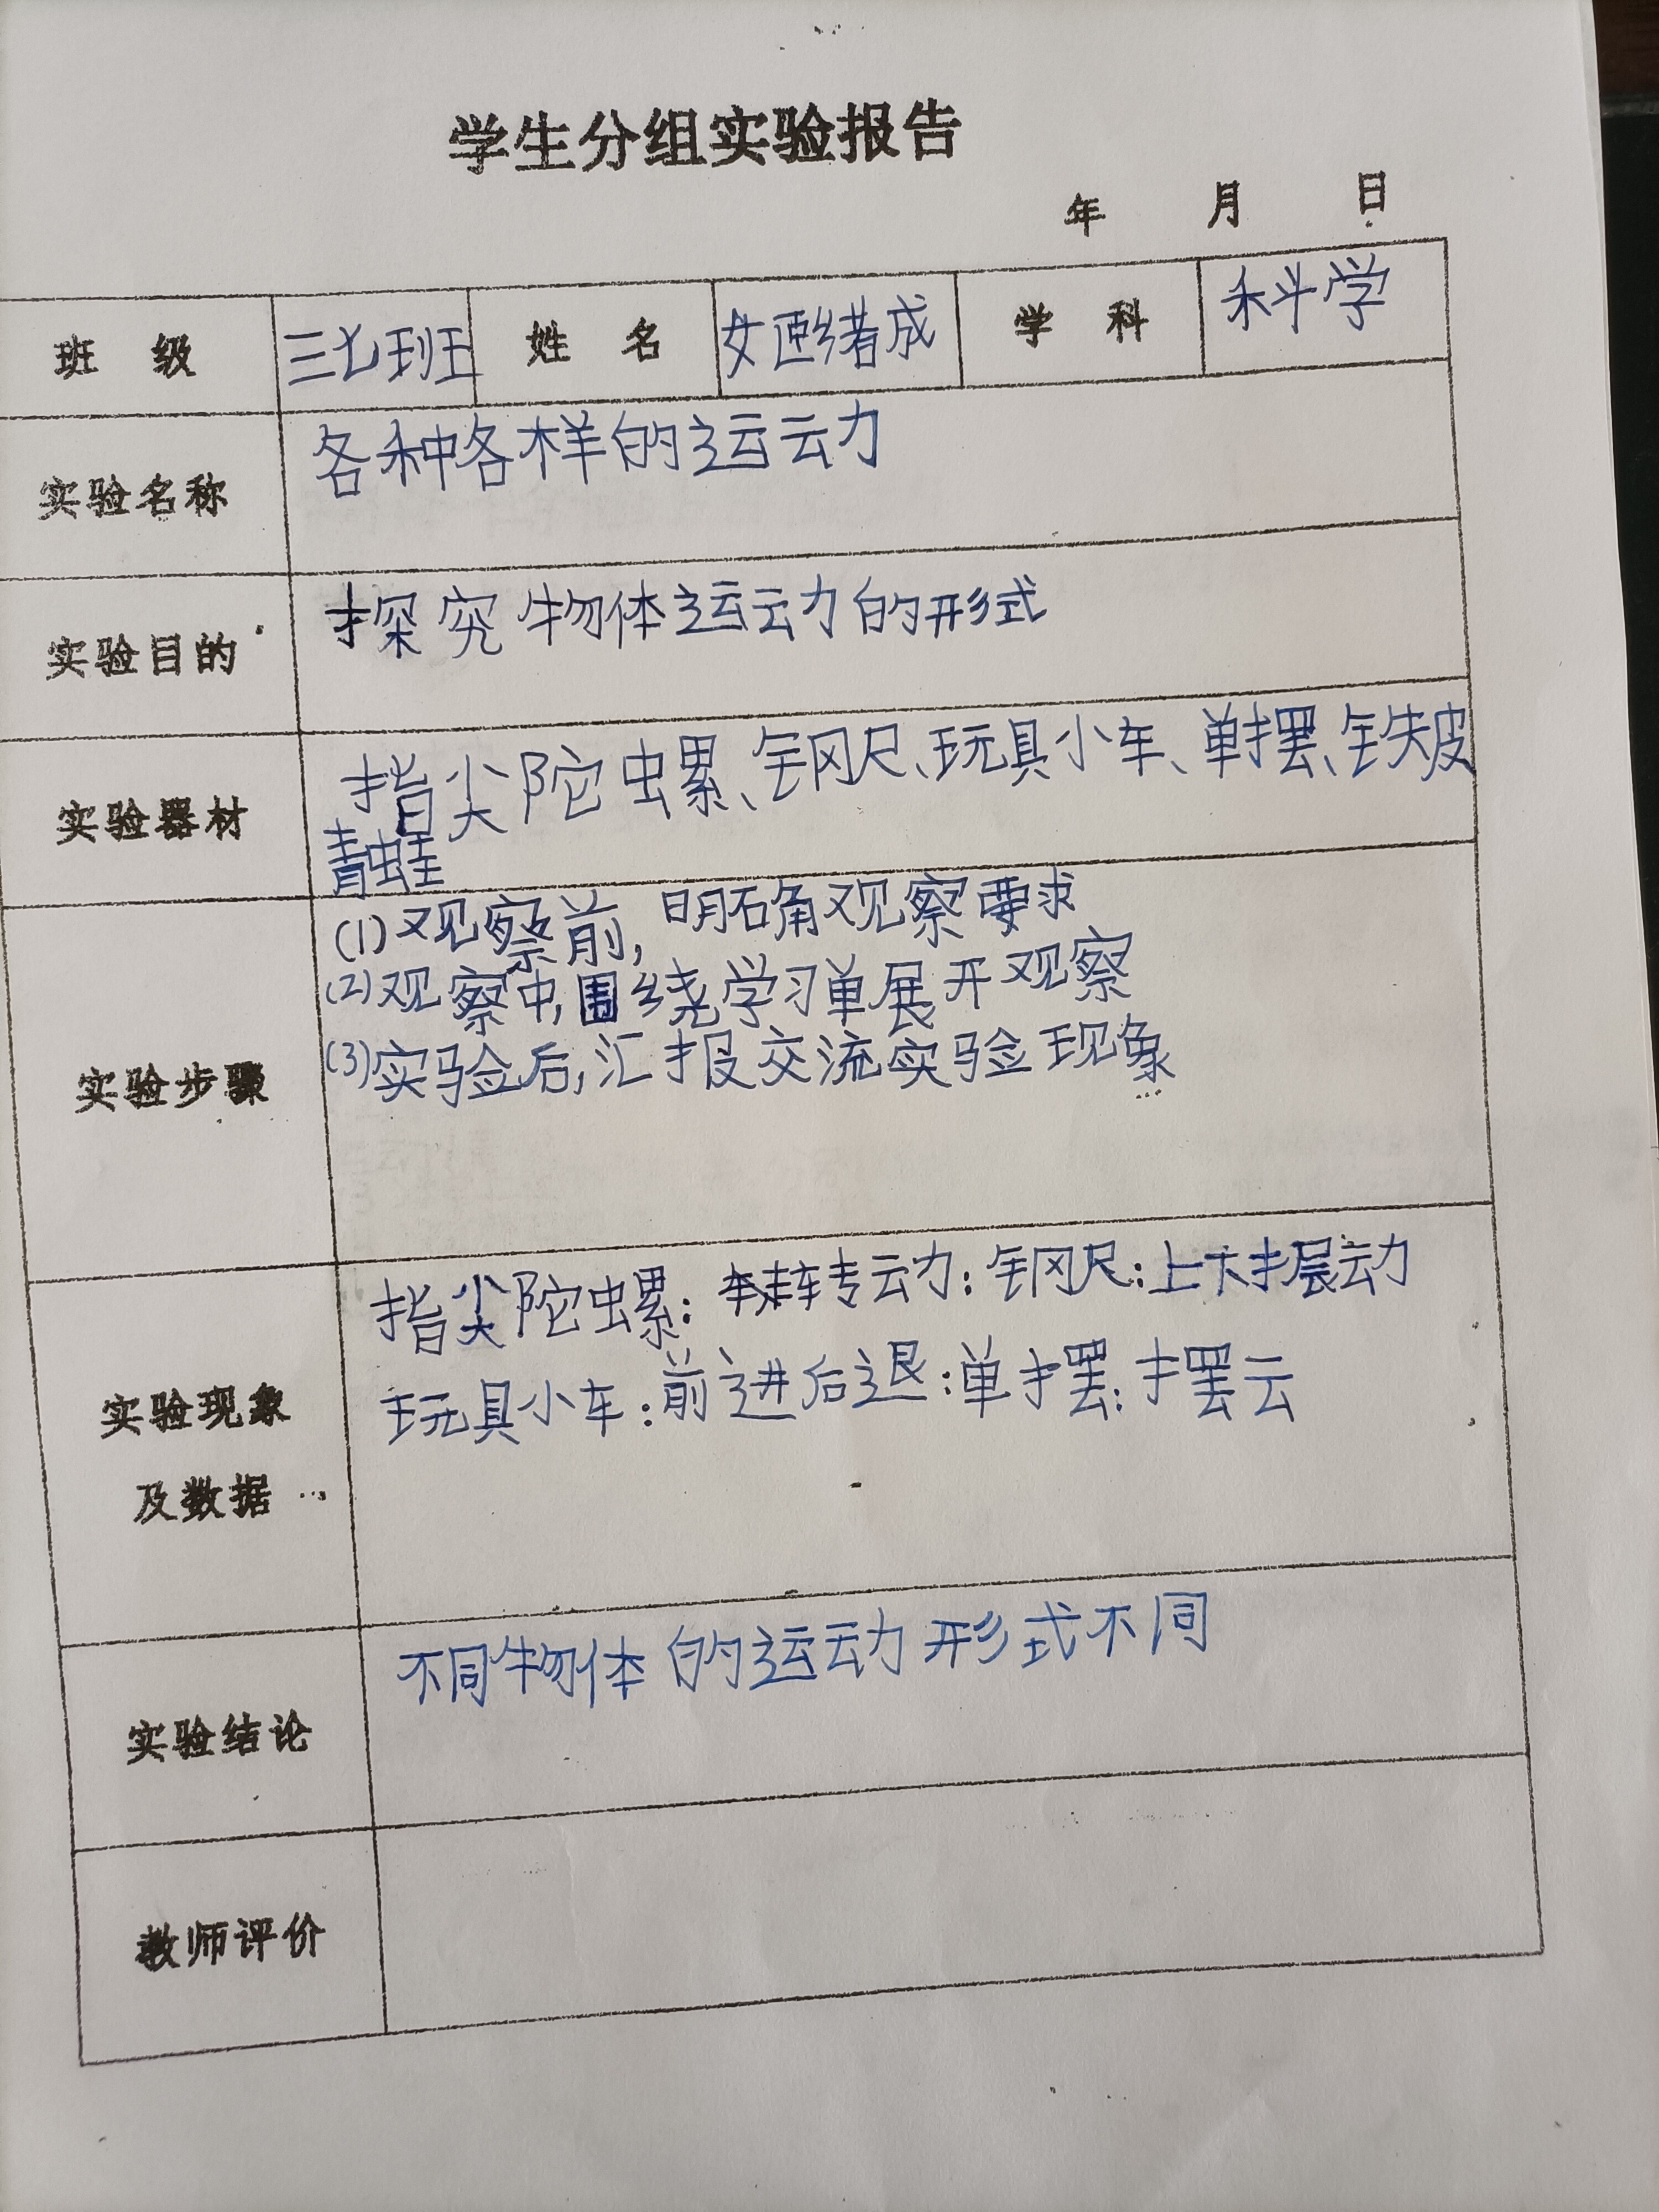 学生分组实验报告
年 月 日
班 级 三七班 姓 名 绪成 学 科 科学
实验名称 各种各样的运动
实验目的 探究物体运动的形式
实验器材 指尖陀螺、钢尺、玩具小车、单摆、铁皮
青蛙
实验步骤
(1)观察前,明确观察要求
(2)观察中,围绕学习单展开观察
(3)实验后,汇报交流实验现象
实验现象
及数据
指尖陀螺:转动:钢尺:上下振动
玩具小车:前进后退:单摆:摆云
实验结论 不同物体的运动形式不同
教师评价